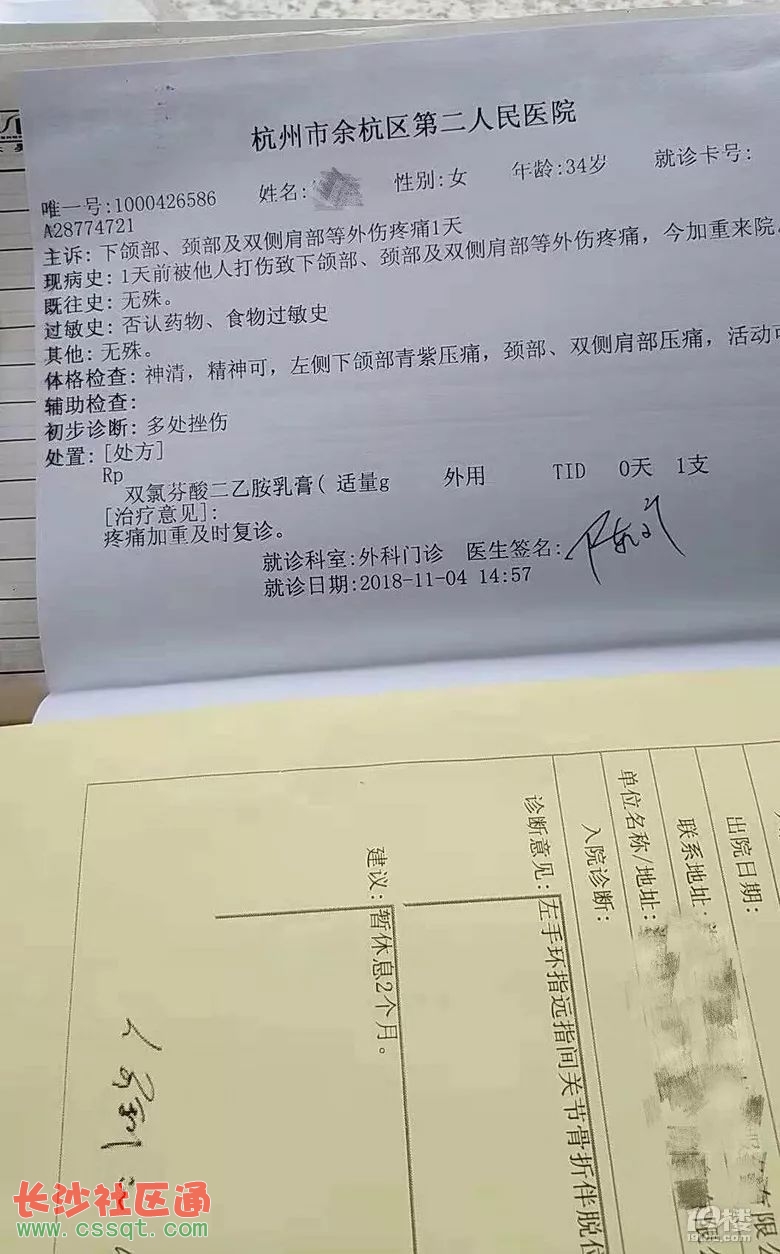 杭州市余杭区第二人民医院
唯一号:1000426586 姓名: 性别:女 年龄:34岁 就诊卡号:
A28774721
主诉: 下颌部、颈部及双侧肩部等外伤疼痛1天
现病史: 1天前被他人打伤致下颌部、颈部及双侧肩部等外伤疼痛，今加重来院。
既往史: 无殊。
过敏史: 否认药物、食物过敏史
其他: 无殊。
体格检查: 神清，精神可，左侧下颌部青紫压痛，颈部、双侧肩部压痛，活动可
辅助检查:
初步诊断: 多处挫伤
处置: [处方]
Rp
双氯芬酸二乙胺乳膏( 适量g 外用 TID 0天 1支
[治疗意见]:
疼痛加重及时复诊。
就诊科室:外科门诊 医生签名:
就诊日期:2018-11-04 14:57
出院日期:
联系地址:
单位名称/地址: 有限
入院诊断:
诊断意见:左手环指远指间关节骨折伴脱位
建议:暂休息2个月。
长沙社区通
www.cssqt.com
19楼